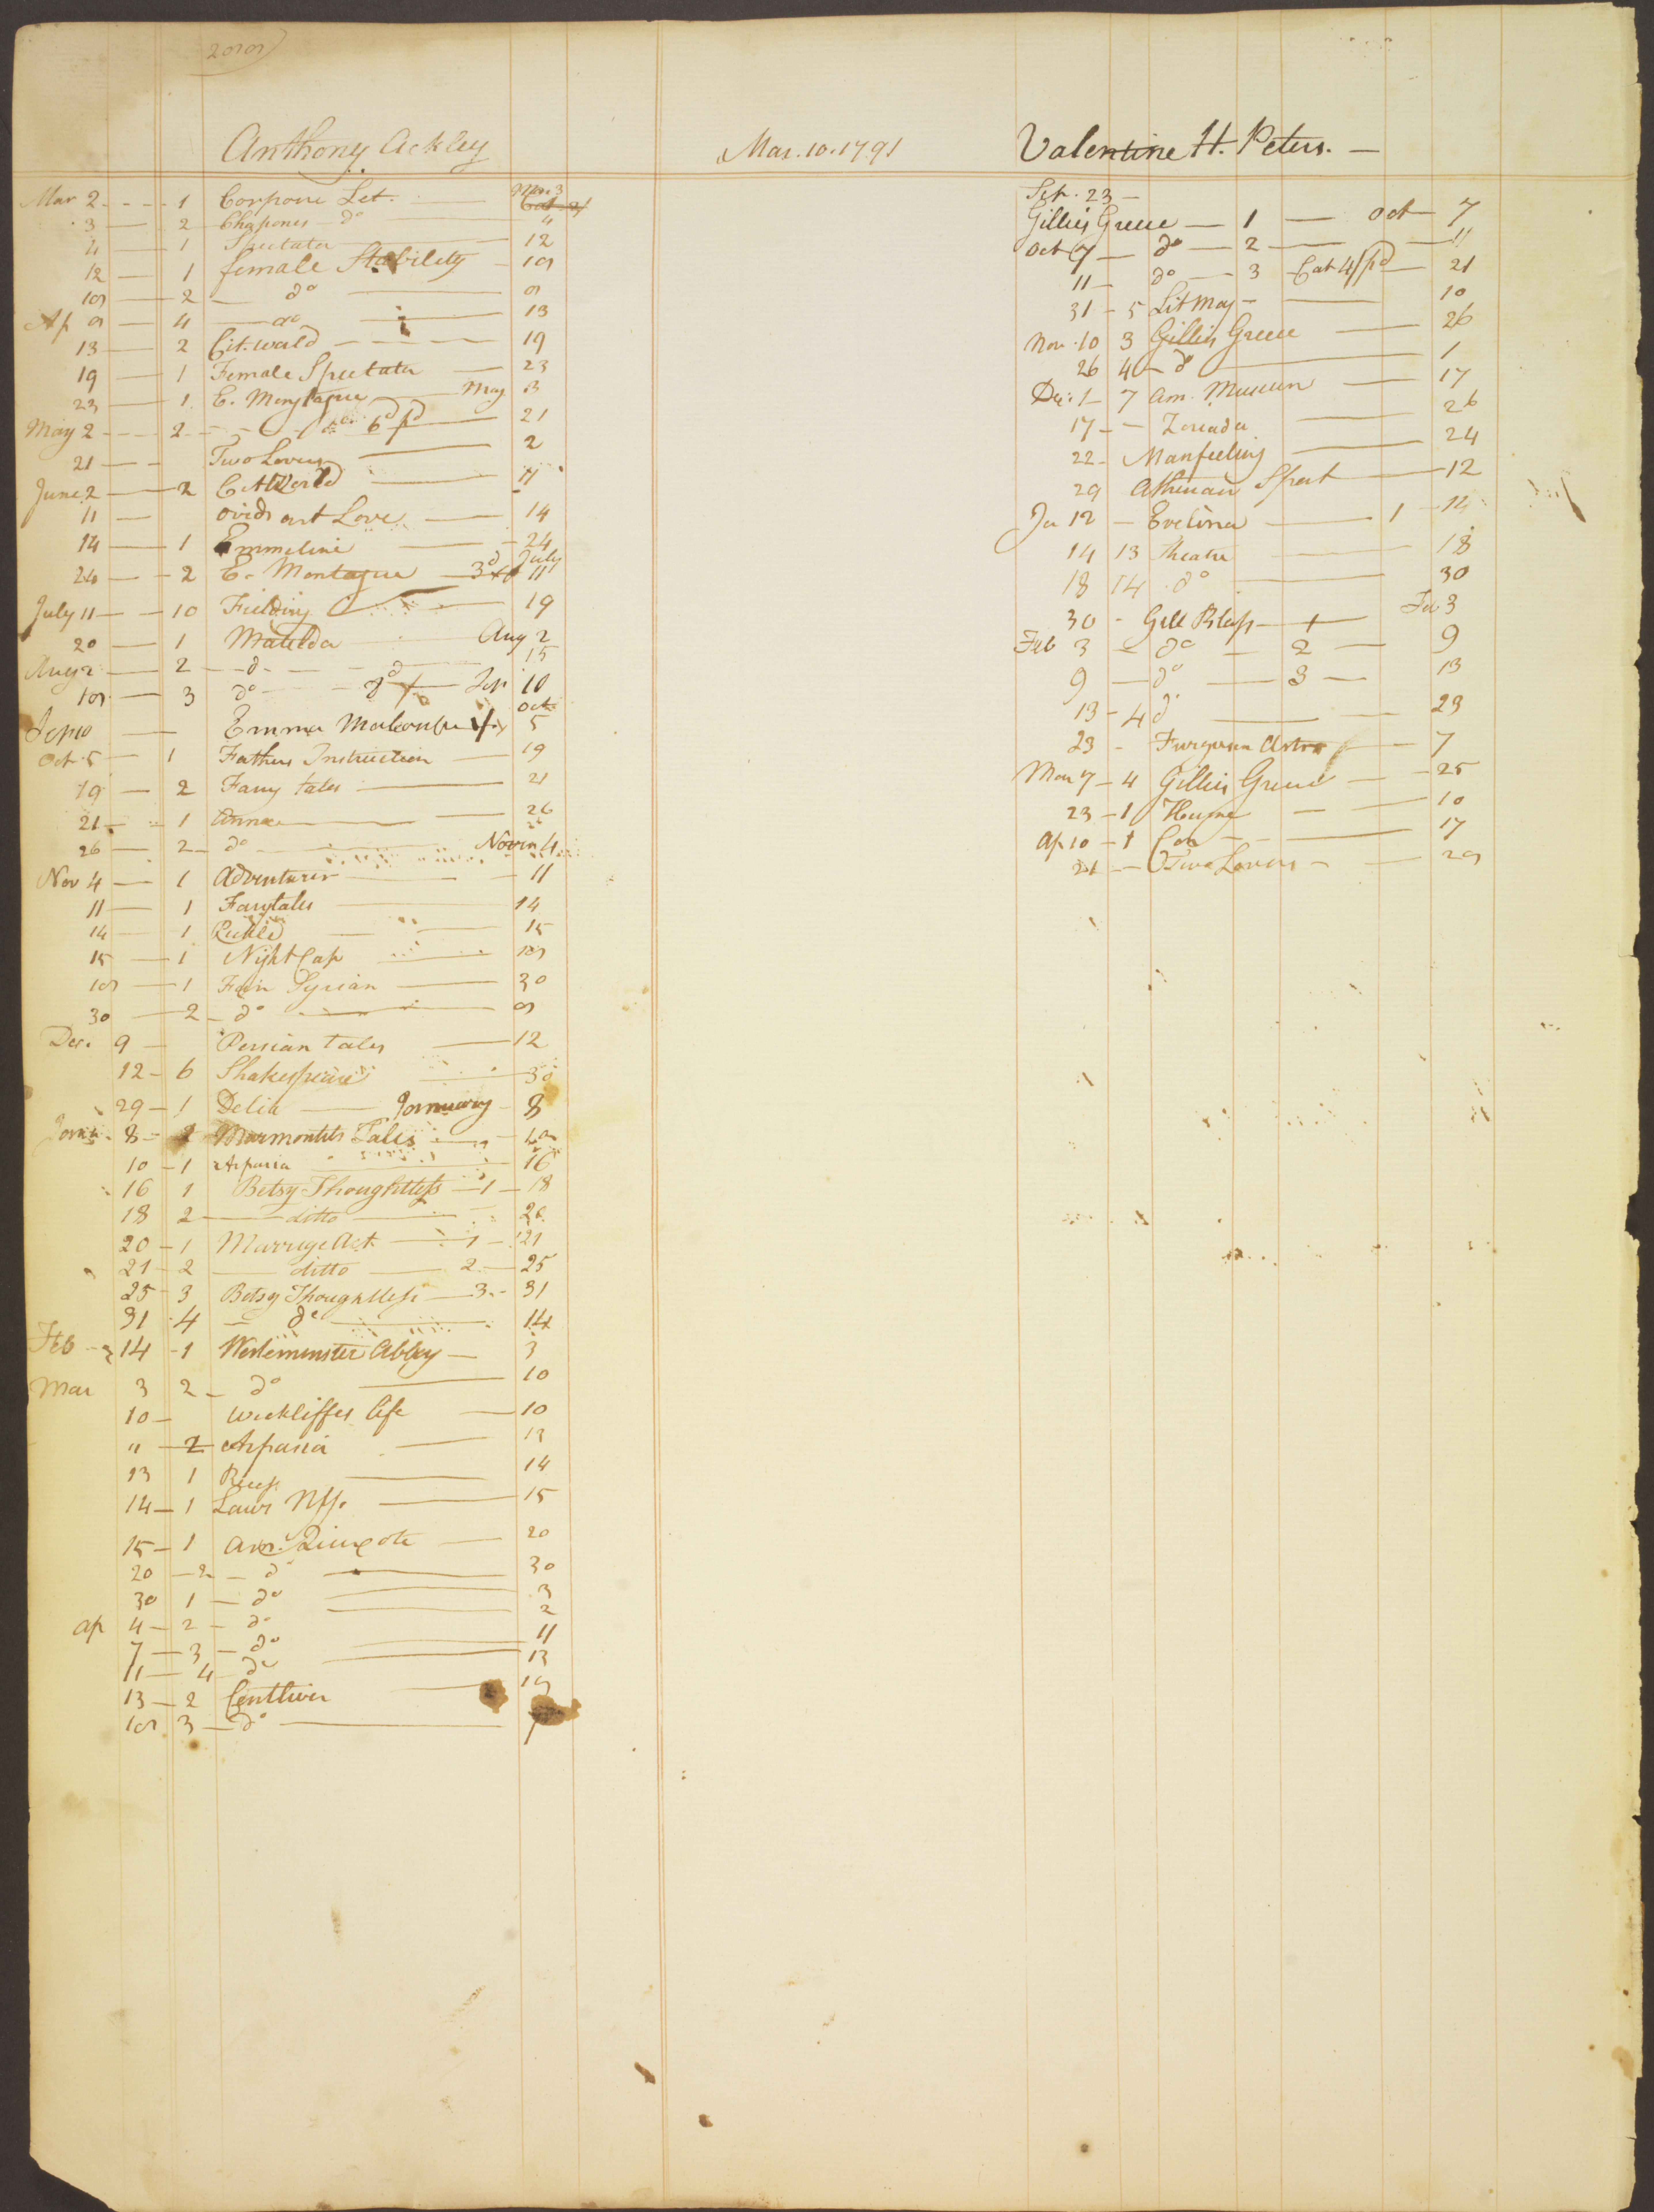 Anthony Ackley
Mar 2 1 Corpone Let. Mar 3
3 2 Chapones do 4
4 1 Spectator 12
12 1 female Stability 19
19 2 do 9
Ap 9 4 do 13
13 2 Cit. World 19
19 1 Female Spectator 23
23 1 E. Montague May 3
May 2 2 6d pd 21
21 Two Lovers 2
June 2 2 Cit World 11
11 ovids art Love 14
14 1 Emmeline 24
24 2 E. Montague 3d July 11
July 11 10 Fielding 19
20 1 Matilda Aug 2
Aug 2 2 d 15
19 3 do Sep 10
Sep 10 Emma Oct 5
Oct 5 1 Fathers Instruction 19
19 2 Fairy tales 21
21 1 Anna 26
26 2 do Novem 4
Nov 4 1 Adventurer 11
11 1 Fairytales 14
14 1 Pickle 15
15 1 Night Cap 19
19 1 Fair Syrian 30
30 2 do 9
Dec. 9 Persian tales 12
12 6 Shakespeare 30
29 1 Delia January 8
8 2 Marmontels Tales
10 1 Aspasia 16
16 1 Betsy Thoughtless 1 18
18 2 ditto 20
20 1 Marrige Act 1 21
21 2 ditto 2 25
25 3 Betsy Thoughtless 3 31
31 4 do 14
Feb 14 1 Westeminster Abbey 3
Mar 3 2 do 10
10 Wickliffes life 10
" 2 Aspasia 13
13 1 14
14 1 15
15 1 20
20 2 d 30
30 1 do 3
ap 4 2 do 2
7 3 do 11
11 4 do 13
13 2 Centliver 19
19 3 do
Mar. 10. 1791
Valentine H. Peters.
Sep. 23
Gillies Greece 1 Oct 7
Oct 7 do 2 11
11 do 3 Cat 4/ pd 21
31 5 Lit Mag 10
Nov. 10 3 Gillies Greece 26
26 4 do 1
Dec. 1 7 Am. Museum 17
17 Zoriada 26
22 Manfeeling 24
29 Athenian Spect 12
Ja 12 Evelina 1 14
14 13 Theatre 18
18 14 do 30
30 Gill Blass 1 Feb 3
Feb 3 do 2 9
9 do 3 13
13 4 d 23
23 Furguson Astro 7
Mar 7 4 Gillies Greece 25
23 1 10
Ap 10 1 17
21 Two Lovers 29